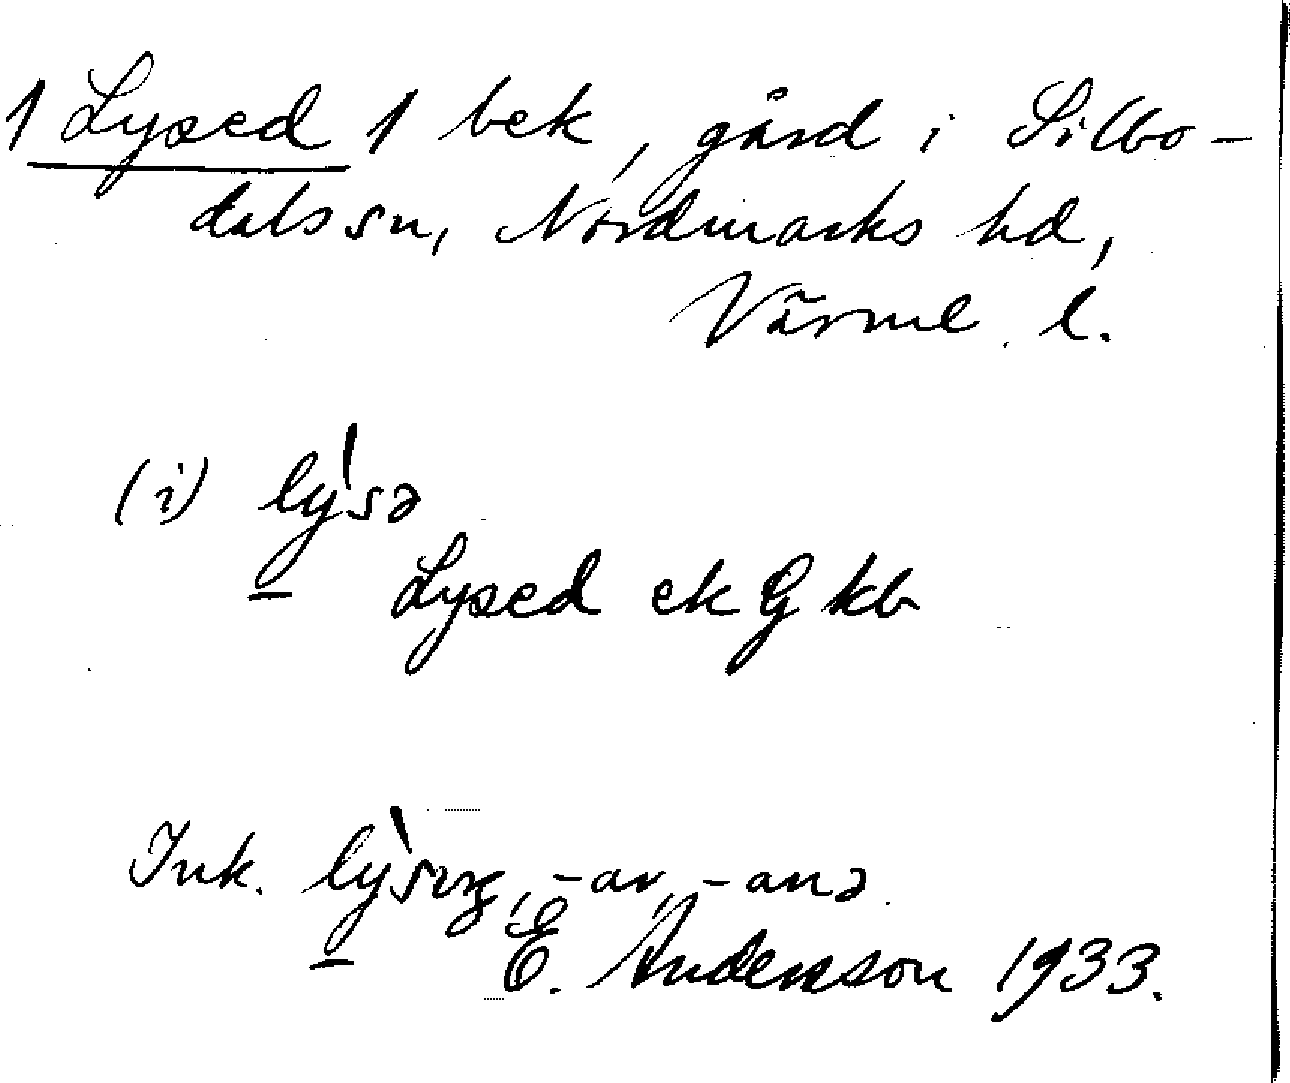 1 Lysed 1 bek, gård i Silbo-
dals sn, Nordmarks hd,
Värml. l.
(i) lý̱sə
Lysed ek G kb
Ink. lỳ̱sıŋ, -ar, -anə.
E. Andersson 1933.